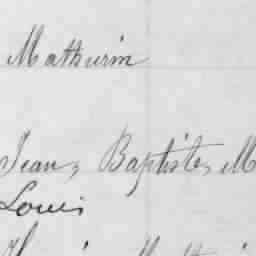 Mathurin
Jean, Baptiste, M
Louis